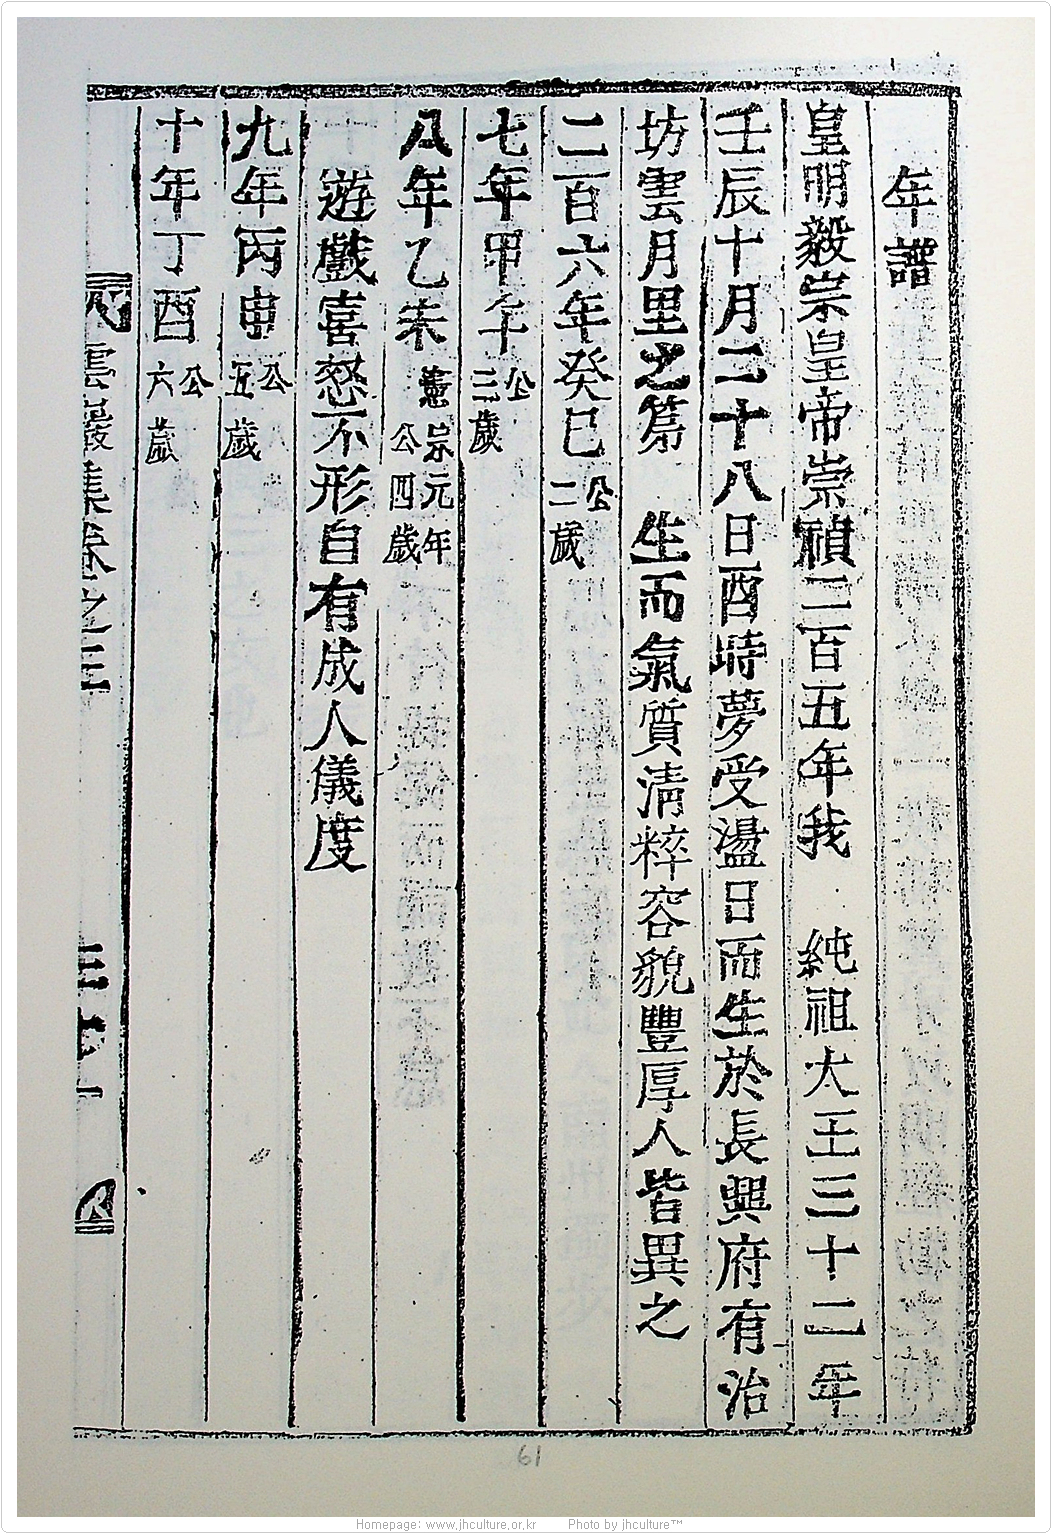 年譜
皇明毅宗皇帝崇禎二百五年我 純祖大王三十二年
壬辰十月二十八日酉時夢受盪日而生於長興府有治
坊雲月里之第 生而氣質淸粹容貌豐厚人皆異之
二百六年癸巳公二歲
七年甲午公三歲
八年乙未憲宗元年公四歲
遊戱喜怒不形自有成人儀度
九年丙申公五歲
十年丁酉公六歲
雲巖集卷之三
61
Homepage: www.jhculture.or.kr Photo by jhculture™